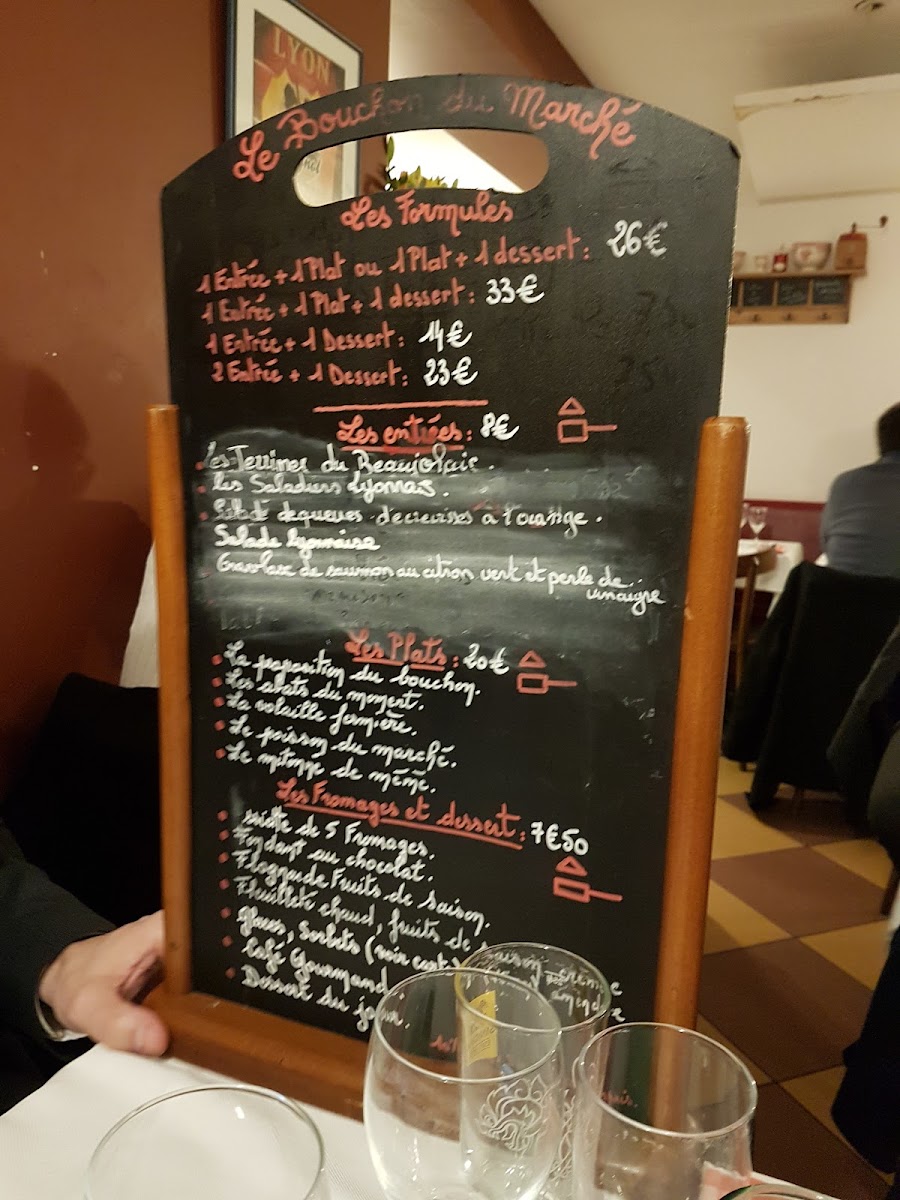 LYON
Le Bouchon du Marché
Les Formules
1 Entrée + 1 Plat ou 1 Plat + 1 dessert : 26€
1 Entrée + 1 Plat + 1 dessert : 33€
1 Entrée + 1 Dessert : 14€
2 Entrée + 1 Dessert : 23€
Les entrées : 8€
Les Terrines du Beaujolais.
Les Saladiers Lyonnais.
Salade de queues d'écrevisses à l'orange.
Salade lyonnaise
Gravlax de saumon au citron vert et perle de
vinaigre
Les Plats : 20€
La proposition du bouchon.
Les abats du moment.
La volaille fermière.
Le poisson du marché.
Le mitonné de mémé.
Les Fromages et dessert : 7€50
assiette de 5 Fromages.
Fondant au chocolat.
Flognarde Fruits de saison.
Feuilleté chaud, fruits de saison crème
amande
glaces, Sorbets (voir carte)
Café Gourmand
Dessert du jour.